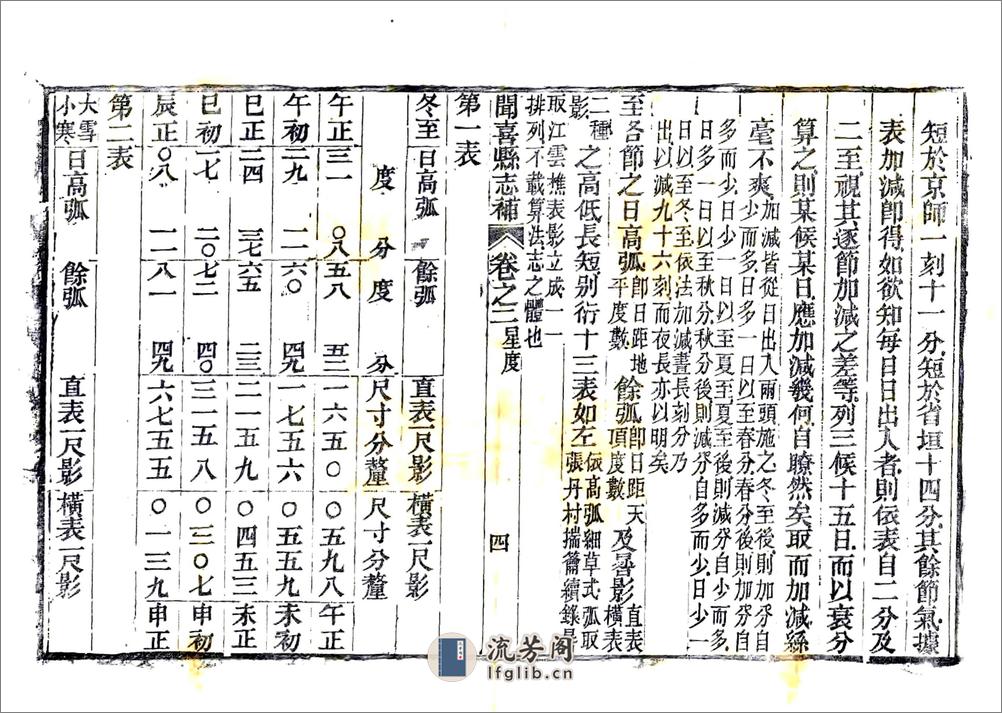 短於京師一刻十一分短於省垣十四分其餘節氣據
表加減卽得如欲知每日日出入者則依表自二分及
二至視其逐節加減之差等列三候十五日而以衰分
算之則某候某日應加減幾何自瞭然矣取而加減繇
毫不爽加減皆從日出入兩頭施之冬至後則加分自
少而多日多一日以至春分春分後則加分自
多而少日少一日以至夏至夏至後則減分自少而多
日多一日以至秋分秋分後則減分自多而少日少一
日以至冬至依法加減晝長刻分乃
出以減九十六刻而夜長亦以明矣
至各節之日高弧卽日距地平度數餘弧卽日距天頂度數及晷影直表橫表
二種影之高低長短別衍十三表如左依高弧細草式弧取張丹村揣籥續錄景
取江雲樵表影立成一一
排列不載算法志之體也
聞喜縣志補 卷之三 星度 四
第一表
冬至 日高弧 餘弧 直表一尺影 橫表一尺影
度 分 度 分 尺寸分釐 尺寸分釐
午正 三一 〇八 五八 五三 一六五〇 〇五九八 午正
午初 二九 一一 六〇 四九 一七五六 〇五五九 未初
巳正 二四 三七 六五 二三 二一五九 〇四五三 未正
巳初 一七 二〇 七二 四〇 三一五八 〇三〇七 申初
辰正 〇八 一一 八一 四九 六七五五 〇一三九 申正
第二表
大雪小寒 日高弧 餘弧 直表一尺影 橫表一尺影
流芳阁
lfglib.cn